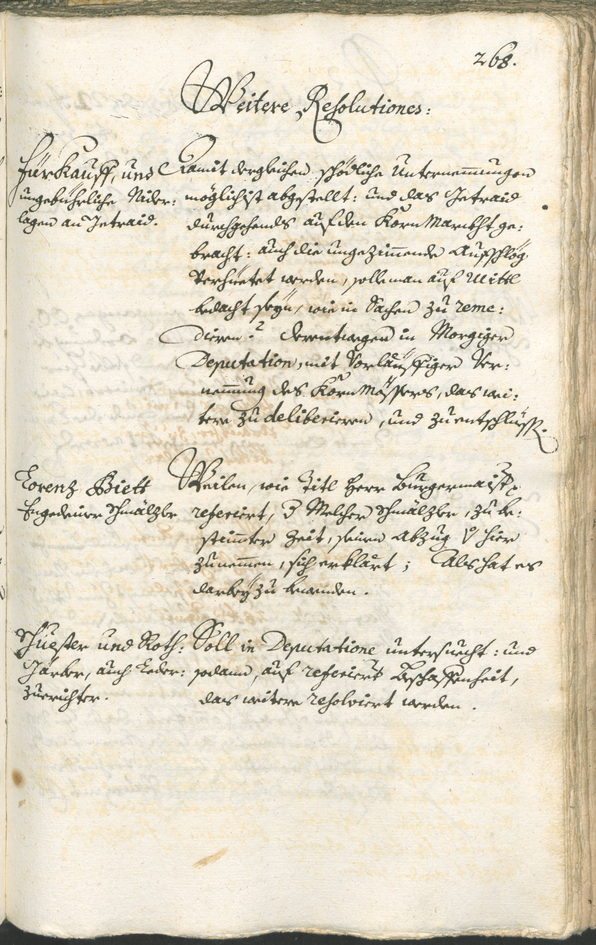 268.
Weitere Resolutiones:
Fürkauff, und
ungebührliche Nider:
lagen an Getraid.
Damit dergleichen schödliche Unternemmungen
möglichist abgestellt: und das Getraid
durchgehends auf den Korn Marckht ge:
bracht: auch die ungezimmende Aufschlög
verhüetet werden, solle man auf Mittl
bedacht seyn, wie in Sachen zu reme:
dieren? derentwegen in Morgiger
Deputation, mit vorläuffiger Ver:
nemmung des Korn Mössers, das wei:
tere zu deliberieren, und zu entschlüss:
Lorenz Biett
Engedeirr Schmälzler
Weilen, wie Titl Herr Burgermaistr
referiert, 3 Melcher Schmälzler, zu be:
stimmter Zeit, seinen Abzug V hier
zunemmen, sich erklärt; Als hat es
darbey zu bewenden.
Schuester und Roth:
Gärber, auch Leder:
zuerichter.
Soll in Deputatione untersuecht: und
sodann, auf referiert Beschaffenheit,
das weitere resolviert werden.